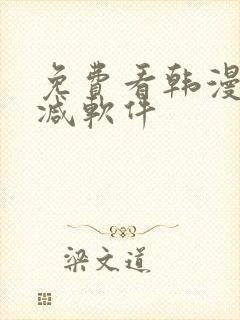 免費看韩漫
减軟件
梁文道